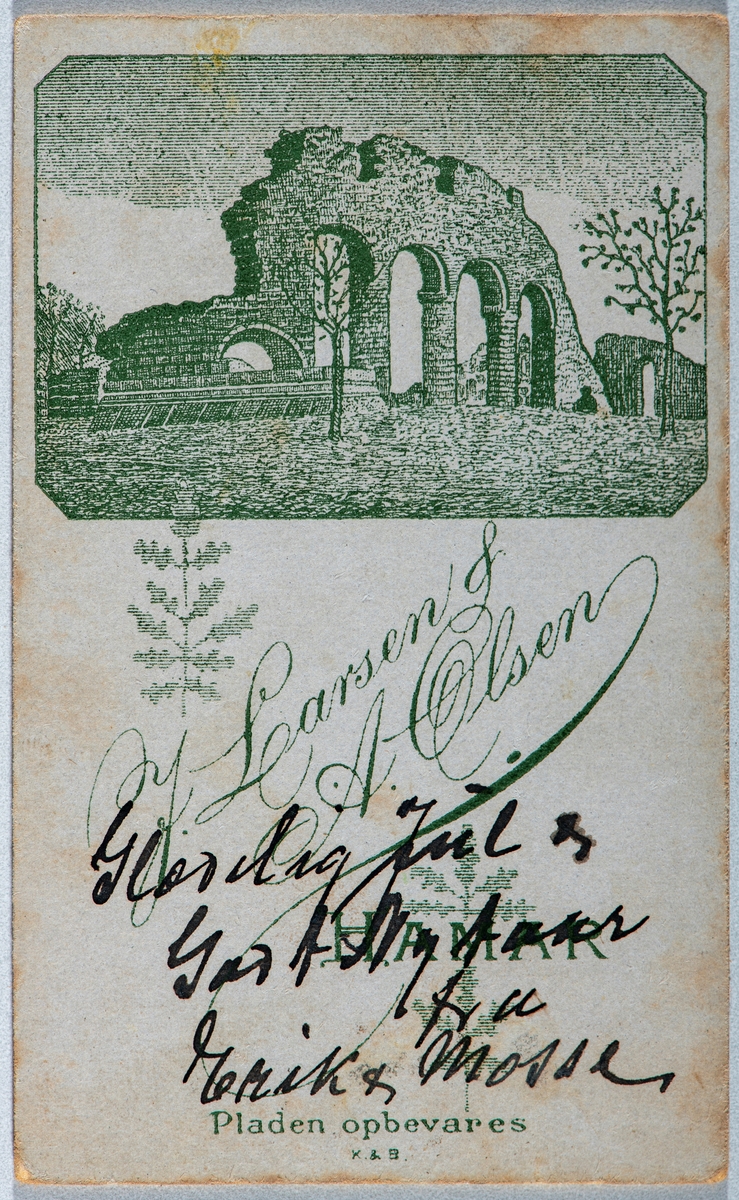 J. Larsen &
A. Olsen
Glædelig Jul &
Godt Nytaar
HAMAR
fra
Erik & Mosse,
Pladen opbevares
K & B.